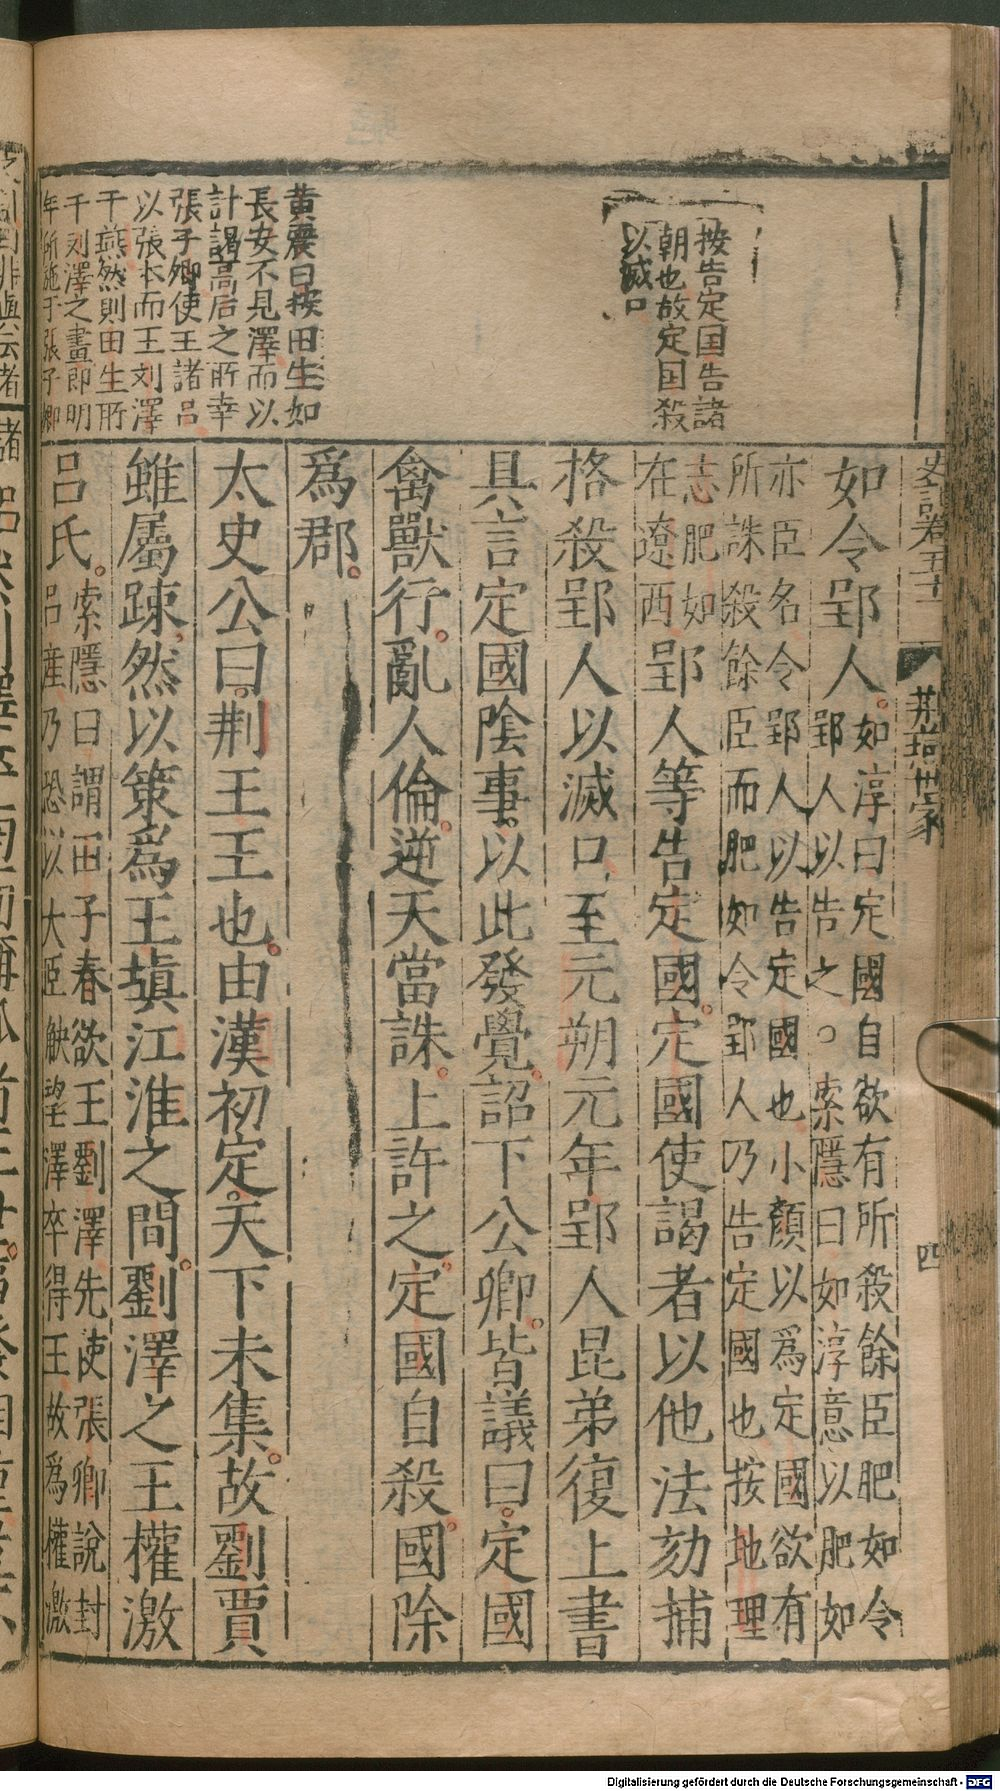 史記卷五十一
荆燕世家
四
按告定国告諸
朝也故定国殺
以滅口
黃震曰按田生如
長安不見澤而以
計謁高后之所幸
張子卿使王諸呂
以張本而王刘澤
于燕然則田生所
干刘澤之畫即明
年所施于張子卿
如令郢人如淳曰定國自欲有所殺餘臣肥如令
郢人以告之○索隱曰如淳意以肥如
亦臣名令郢人以告定國也小顏以爲定國欲有
所誅殺餘臣而肥如令郢人乃告定國也按地理
志肥如
在遼西
郢人等告定國定國使謁者以他法劾捕
格殺郢人以滅口至元朔元年郢人昆弟復上書
具言定國陰事以此發覺詔下公卿皆議曰定國
禽獸行亂人倫逆天當誅上許之定國自殺國除
爲郡
太史公曰荆王王也由漢初定天下未集故劉賈
雖屬疎然以策爲王填江淮之間劉澤之王權激
呂氏索隱曰謂田子春欲王劉澤先使張卿說封
呂產乃恐以大臣觖望澤卒得王故爲權激
Digitalisierung gefördert durch die Deutsche Forschungsgemeinschaft - DFG